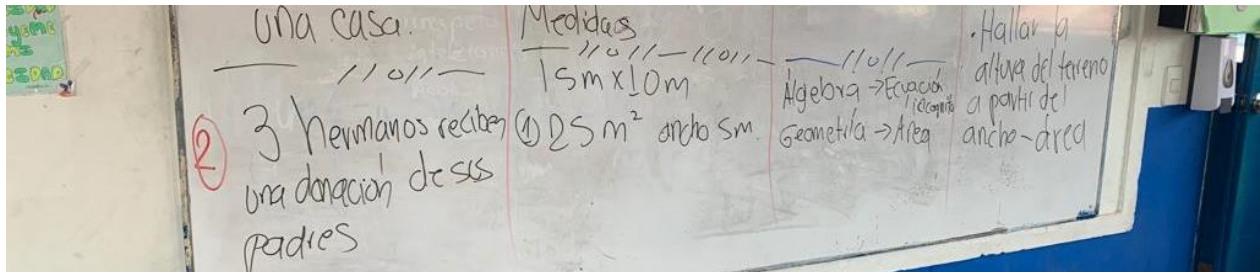 una casa.
3 hermanos reciben
una donación de sus
padres
2
Medidas
15m x 10m
① 25 m² ancho 5m.
Algebra → Ecuación
incognita
Geometría → Área
· Hallar la
altura del terreno
a partir del
ancho-área